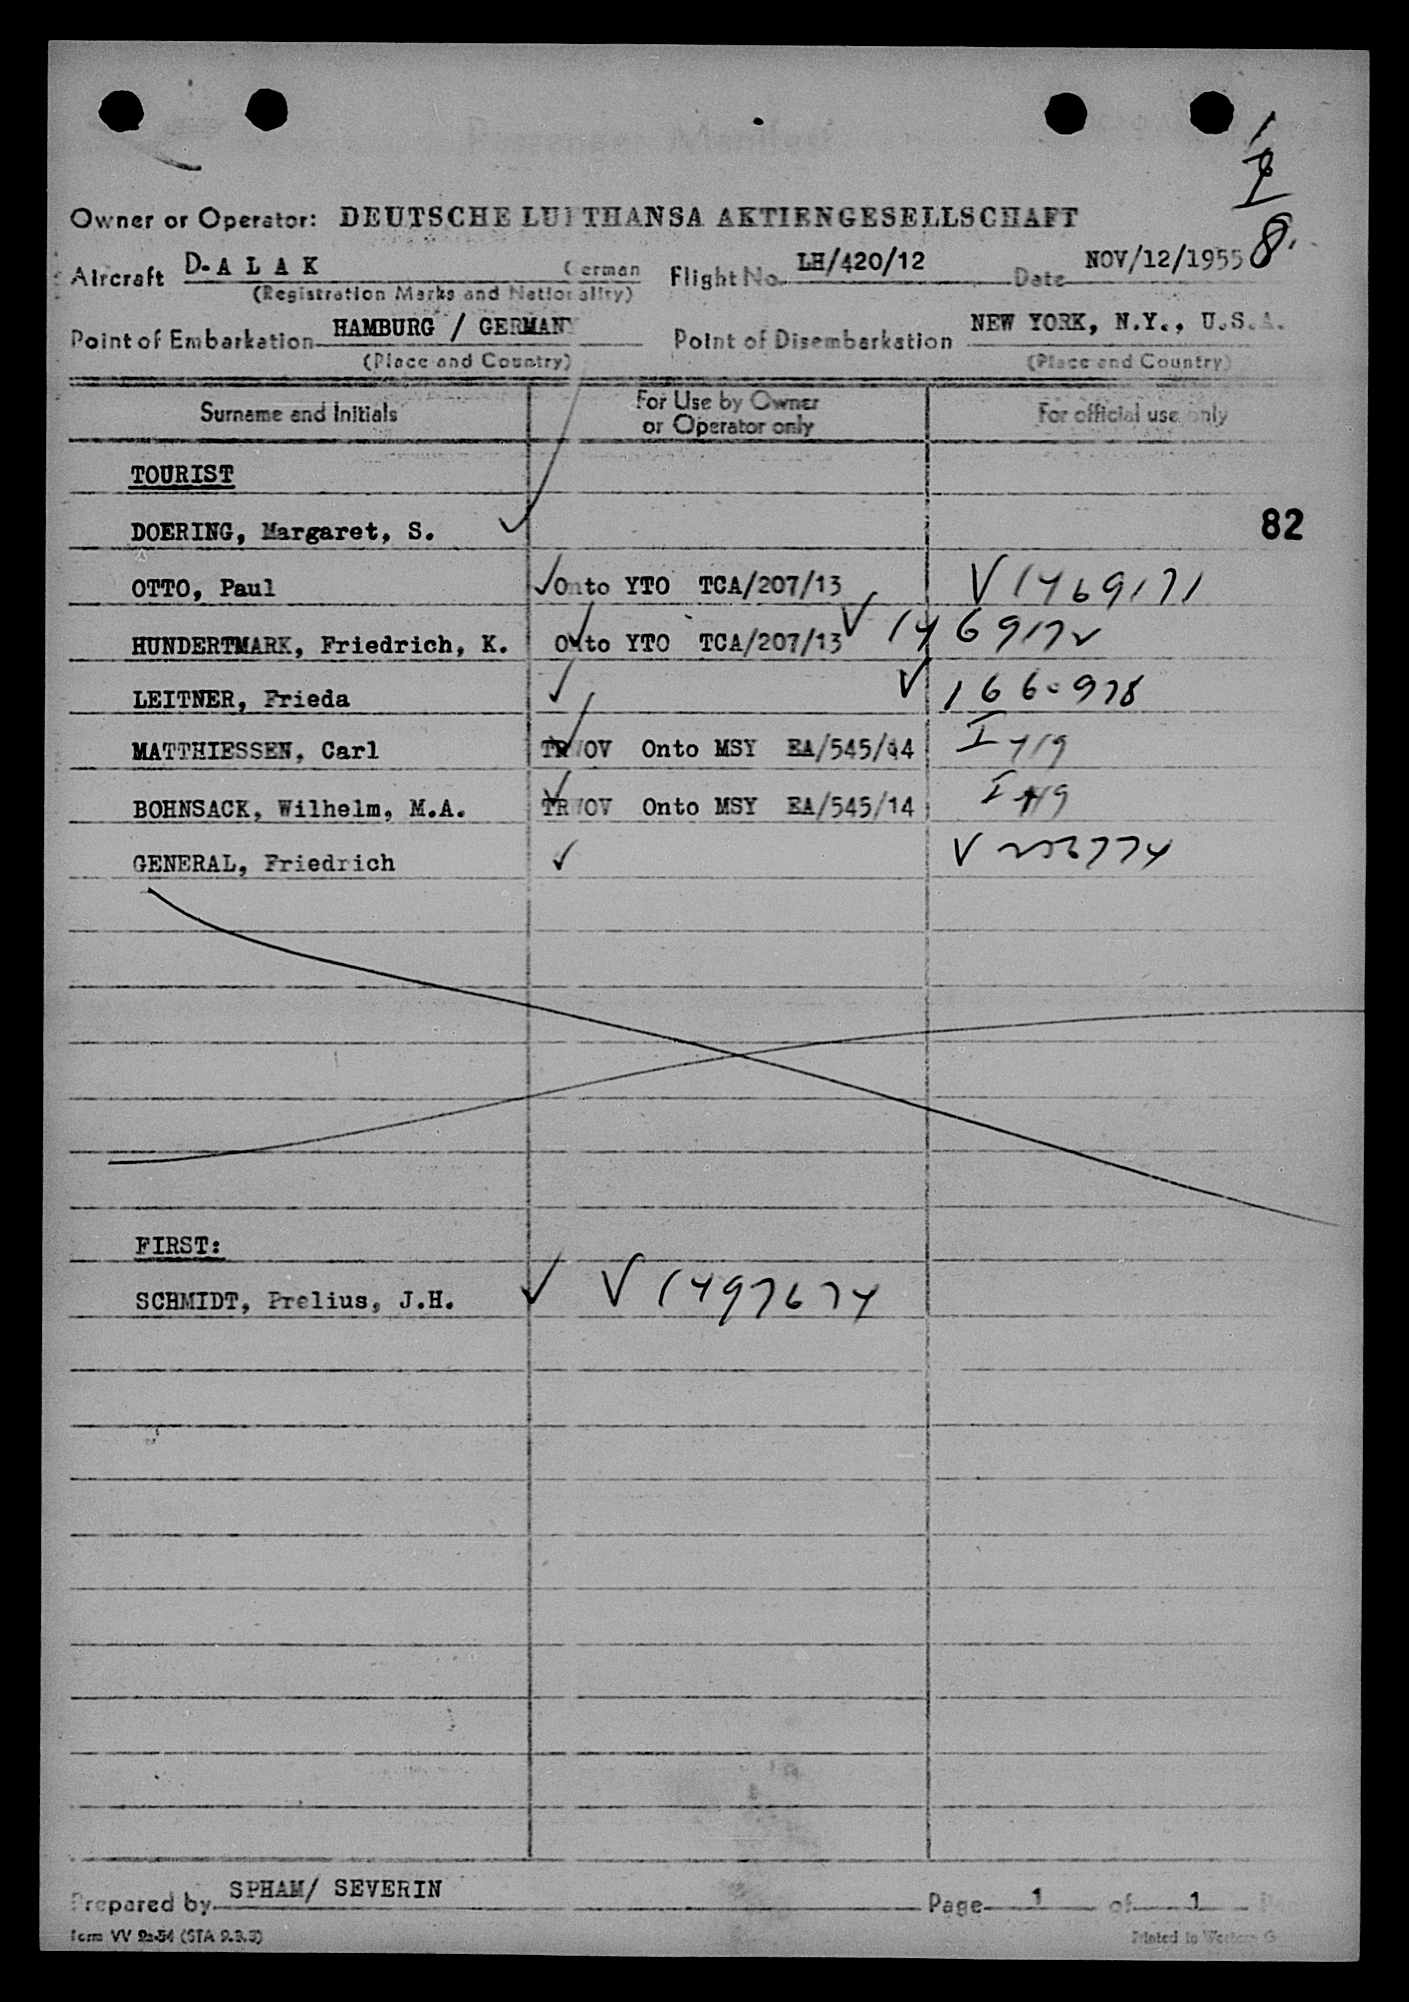 Passenger Manifest
Owner or Operator: DEUTSCHE LUFTHANSA AKTIENGESELLSCHAFT
8.
Aircraft D-A L A K German Flight No. LH/420/12 Date NOV/12/1955
(Registration Marks and Nationality)
Point of Embarkation HAMBURG / GERMANY Point of Disembarkation NEW YORK, N.Y., U.S.A.
(Place and Country) (Place and Country)
Surname and Initials For Use by Owner or Operator only For official use only
TOURIST
DOERING, Margaret, S. ✓ 82
OTTO, Paul ✓ Onto YTO TCA/207/13 V 1469171
HUNDERTMARK, Friedrich, K. ✓ Onto YTO TCA/207/13 V 1469172
LEITNER, Frieda ✓ V 1660978
MATTHIESSEN, Carl ✓ TRWOV Onto MSY EA/545/14 I 419
BOHNSACK, Wilhelm, M.A. ✓ TRWOV Onto MSY EA/545/14 I 419
GENERAL, Friedrich ✓ V
FIRST:
SCHMIDT, Prelius, J.H. ✓ V 1497674
Prepared by SPHAM/ SEVERIN Page 1 of 1
Form VV 2a-54 (STA 9.3.5) Printed in Western G